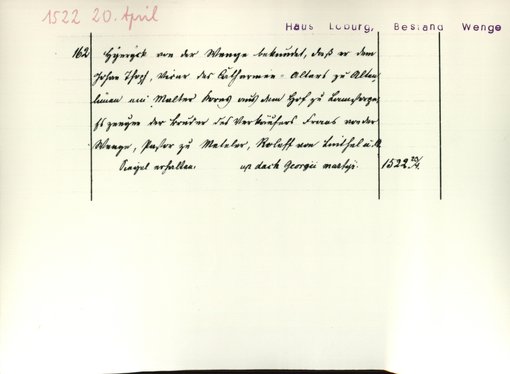 1522 20. April
Haus Loburg, Bestand Wenge
162 Hynrick von der Wenge bekundet, daß er dem
Johan , Vicar des Catharinen-Altars zu Alten-
ein Malter Korns aus dem Hof zu
Es zeugen der Bruder des Verkäufers Frans von der
Wenge, Pastor zu Metelen, Roloff von
Siegel erhalten. up dach Georgii martyr. 1522 23/4.